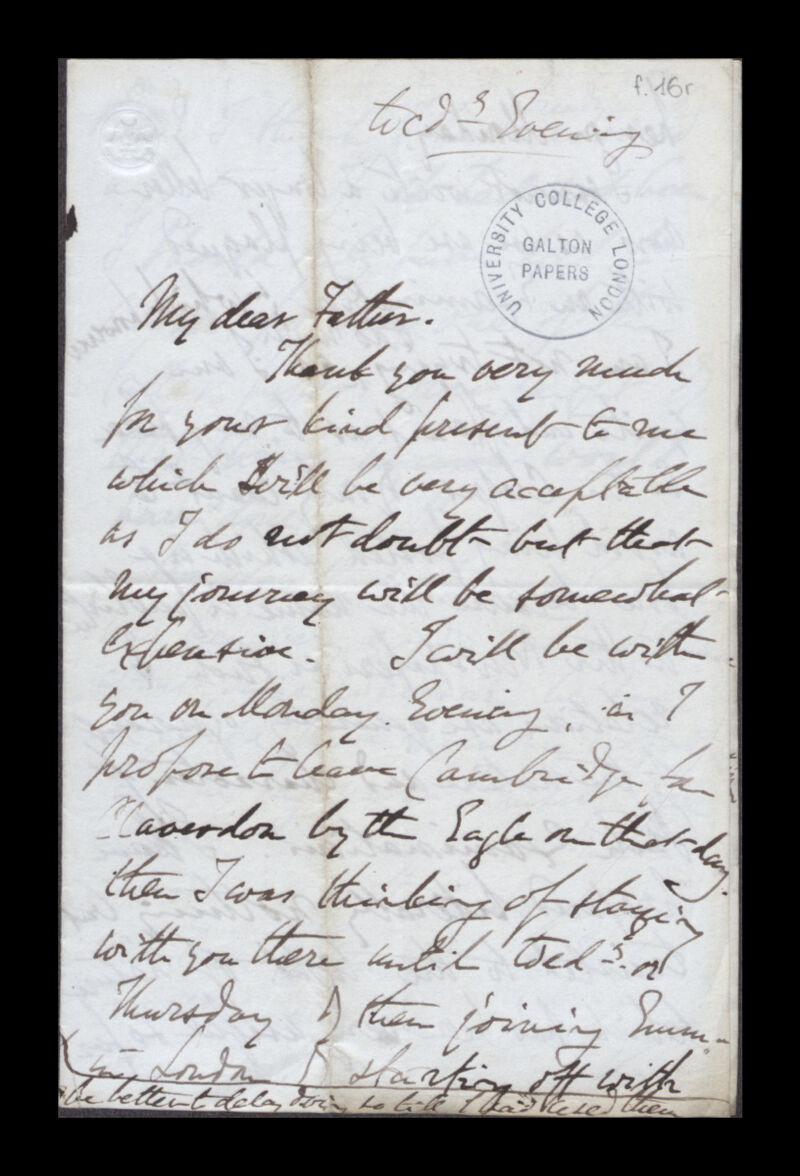 f.16r
Wed.s Evening
UNIVERSITY COLLEGE LONDON
GALTON
PAPERS
My dear Father.
Thank you very much
for your kind present to me
which will be very acceptable
as I do not doubt but that
my journey will be somewhat
expensive. I will be with
you on Monday Evening, as I
propose to leave Cambridge for
Claverdon by the Eagle on that day.
then I was thinking of staying
with you there until Wed.s or
Thursday & then joining Emma
in London & starting off with
be better to delay doing so till I had used them